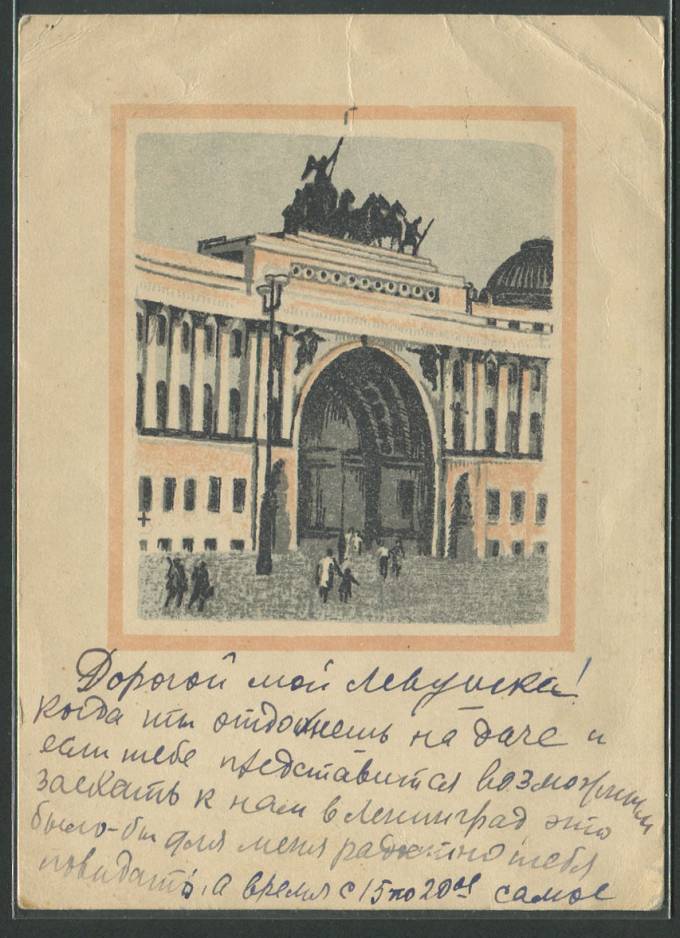 Дорогой мой Левушка!
когда ты отдохнешь на даче и
если тебе представится возможным
заехать к нам в Ленинград это
было-бы для меня радостно тебя
повидать, а время с 15 по 20ое самое